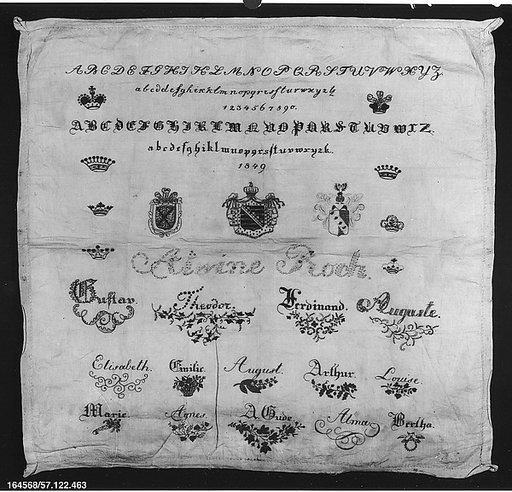 ABCDEFGHIJKLMNOPQRSTUVWXYZ.
1234567890.
ABCDEFGHIKLMNOPQRSTUVWXZ.
1849
Alwine Koch
Gustav. Theodor. Ferdinand. Auguste.
Elisabeth. Emilie. August. Arthur. Louise.
Marie. Agnes. A Gude Alma Bertha.
164568/57.122.463